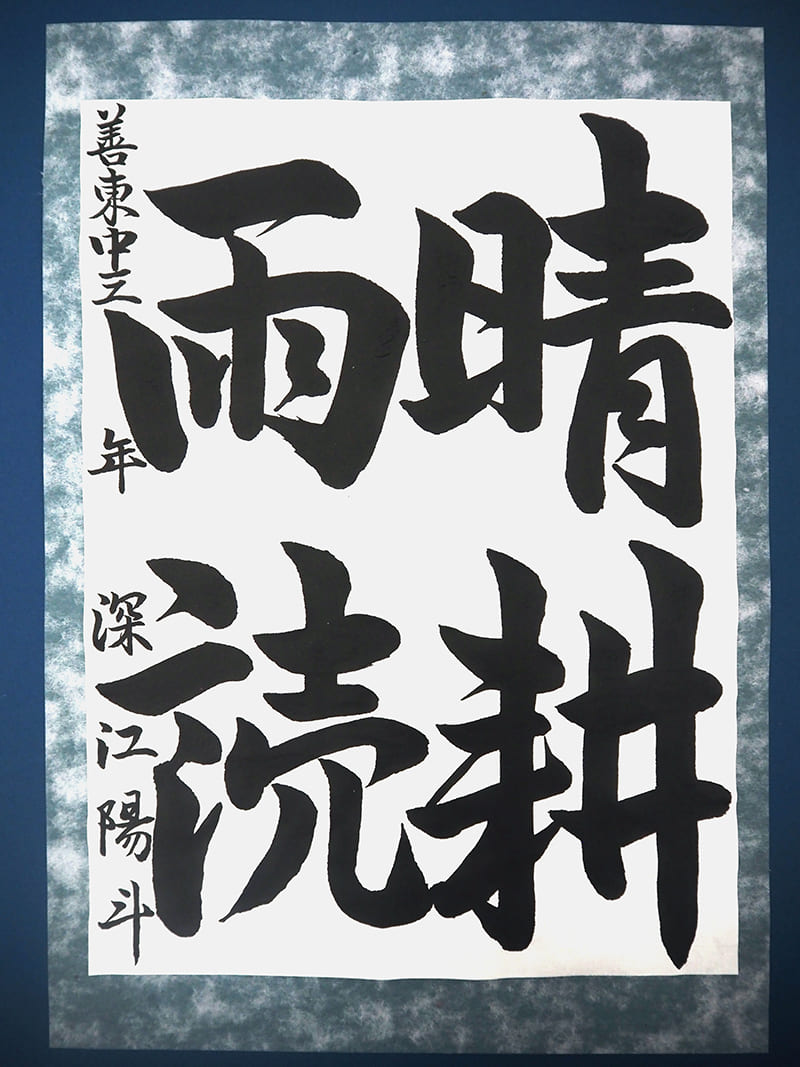 晴耕
雨読
善東中三年 深江陽斗